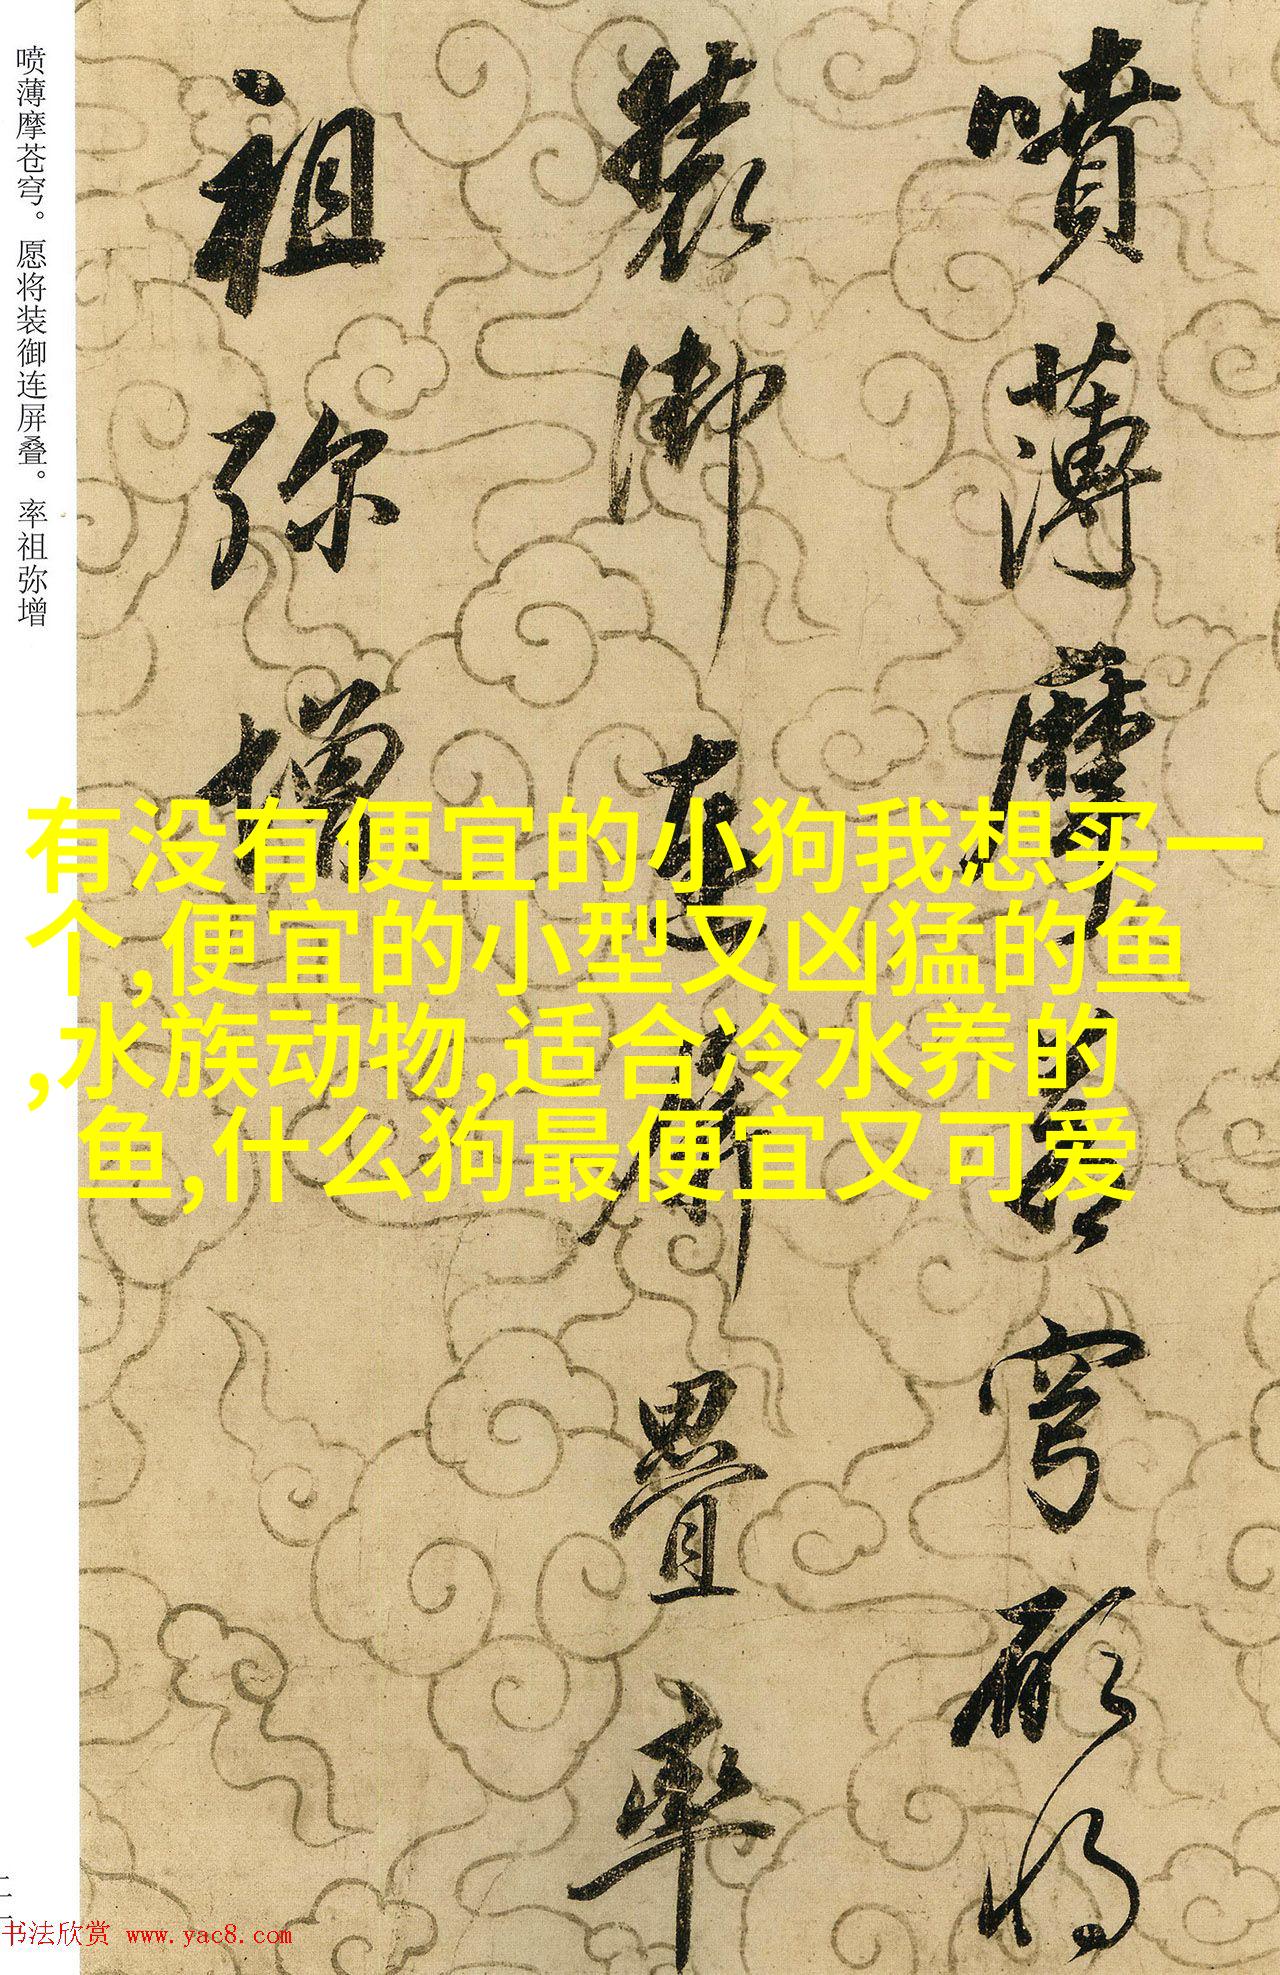 喷薄摩苍穹。愿将装御连屏叠。率祖弥增
噴薄摩蒼穹願將
装御連屏疊率
祖弥增
有没有便宜的小狗我想买一
个,便宜的小型又凶猛的鱼
,水族动物,适合冷水养的
鱼,什么狗最便宜又可爱
书法欣赏 www.yac8.com